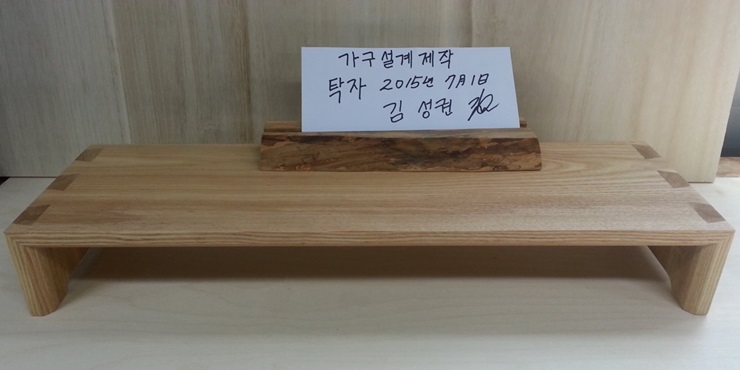 가구설계제작
탁자 2015년 7月1日
김성권